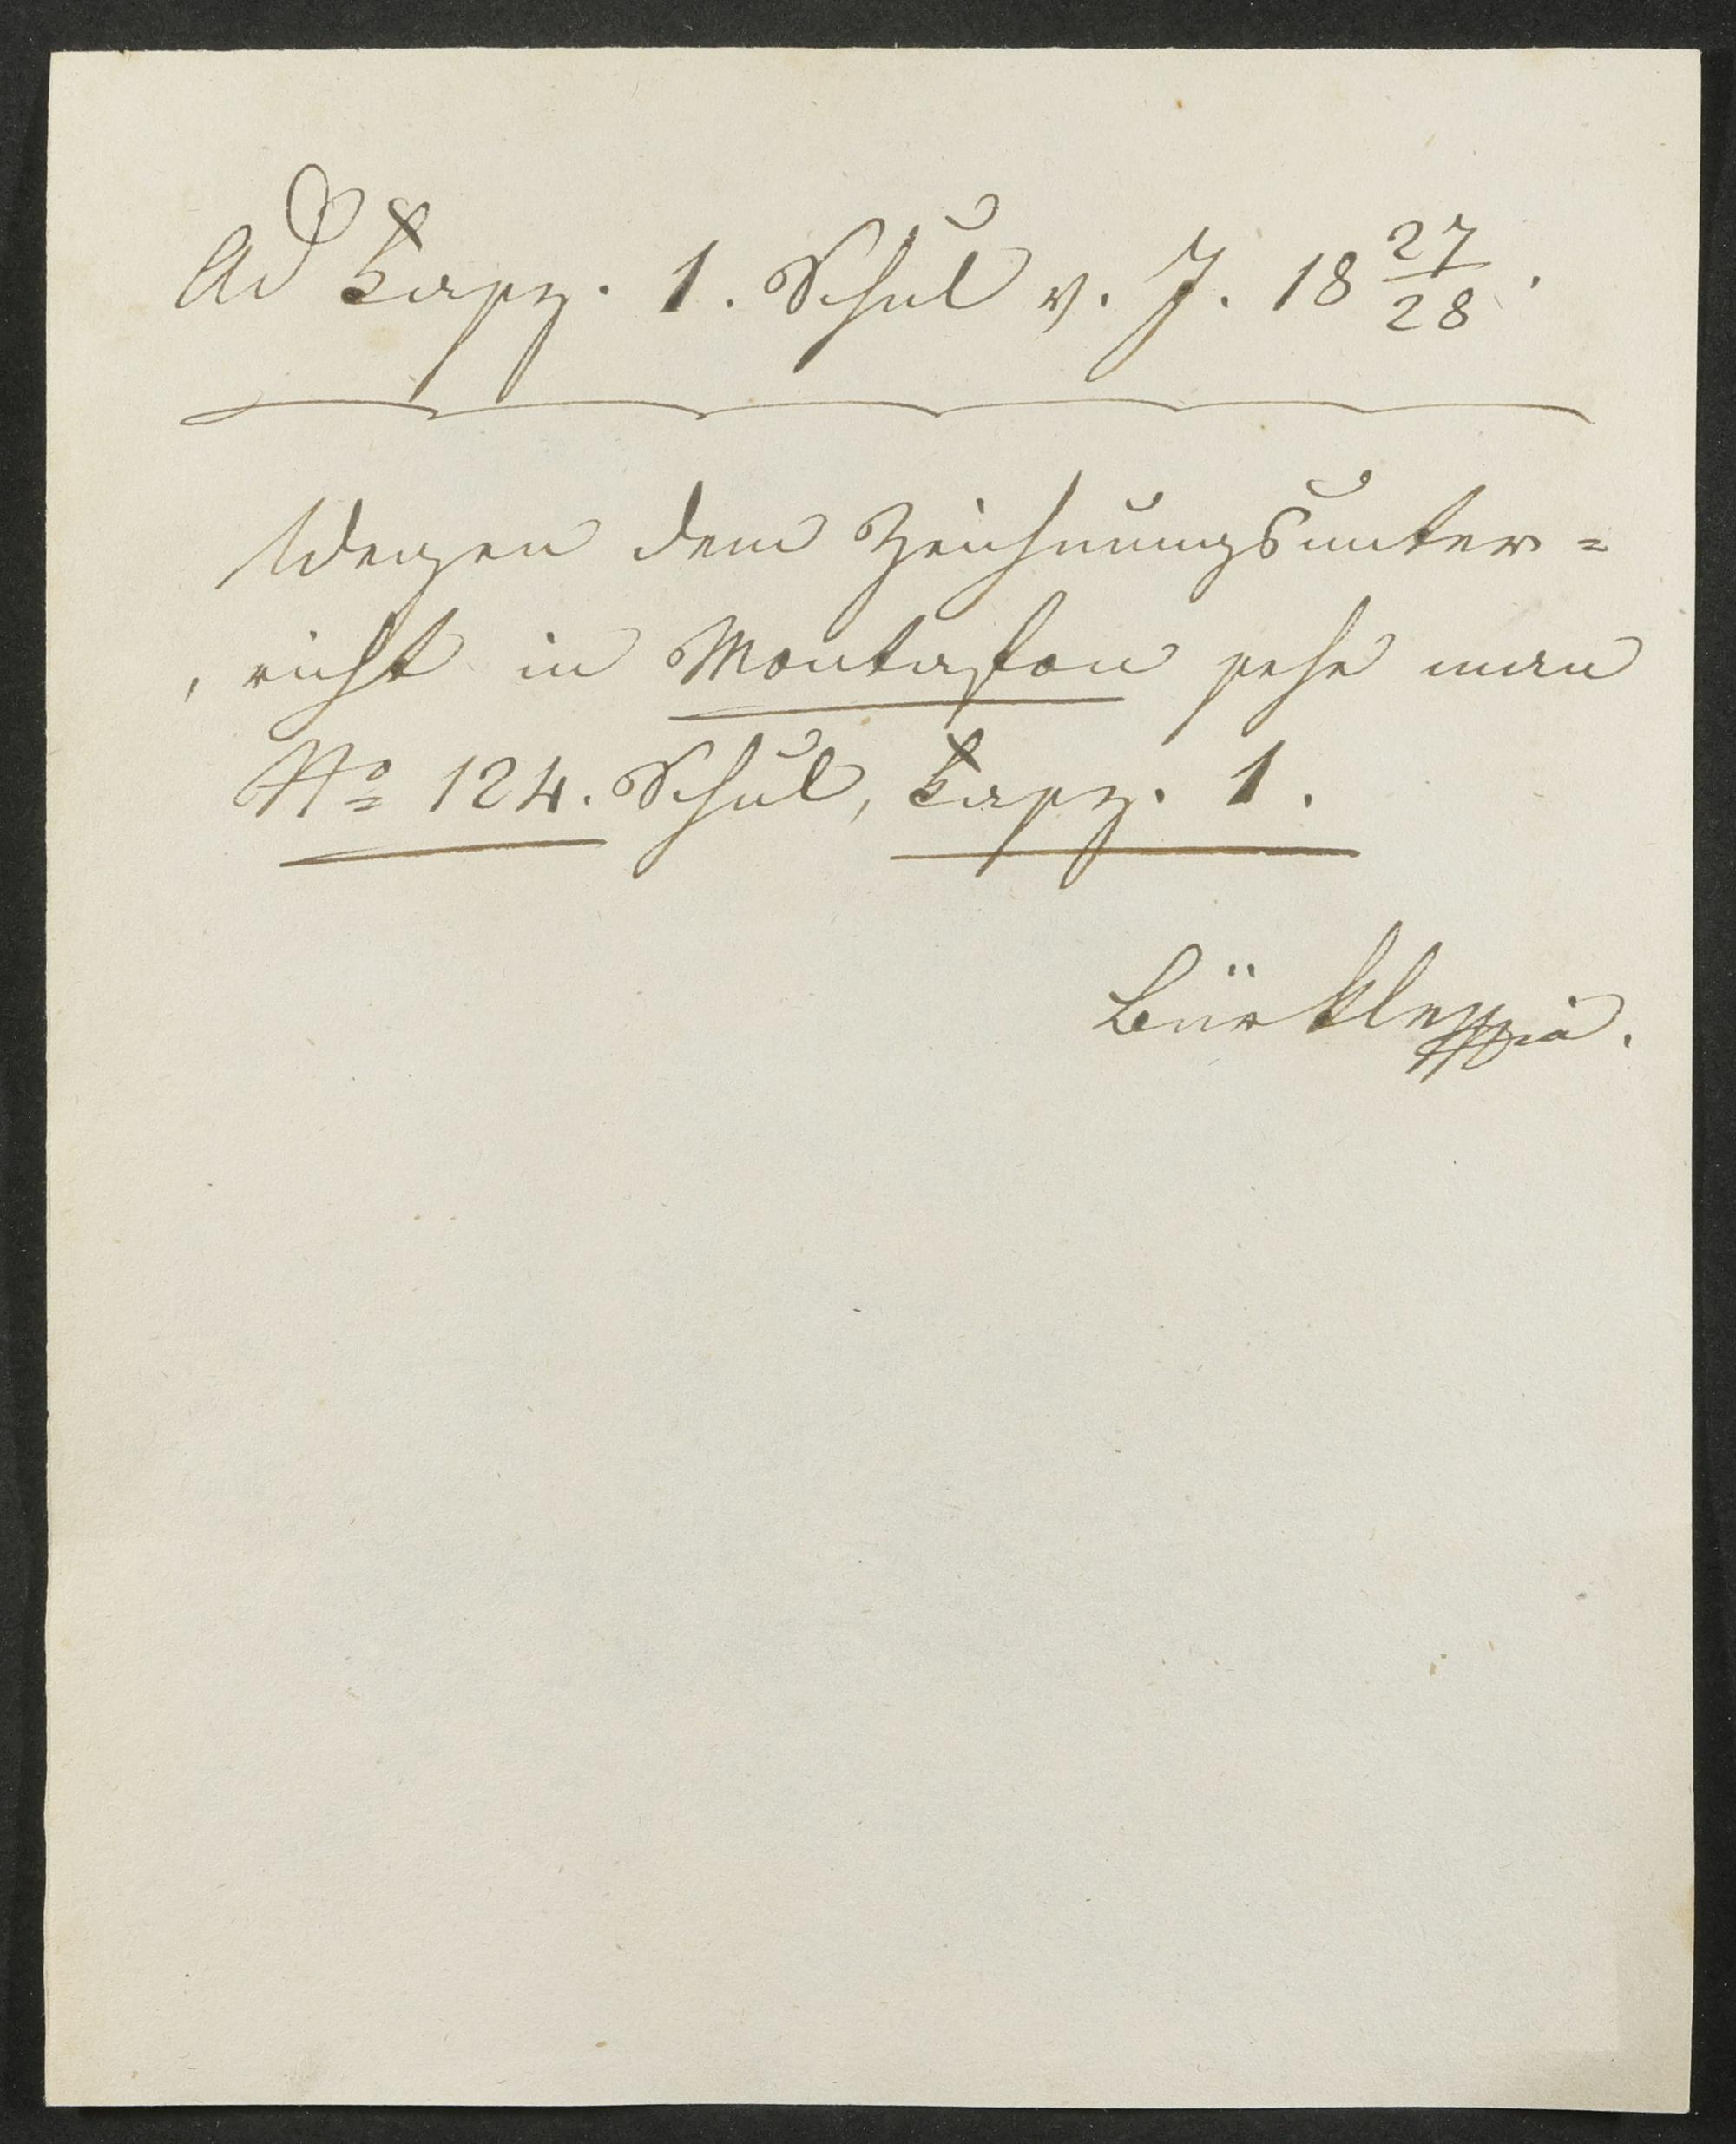 Ad Fasz. 1. Schul v. J. 18 27/28.
Wegen dem Zeichnungsunter=
richt in Montafon sehe man
No 124. Schul, Fasz. 1.
Bürkle mpia.